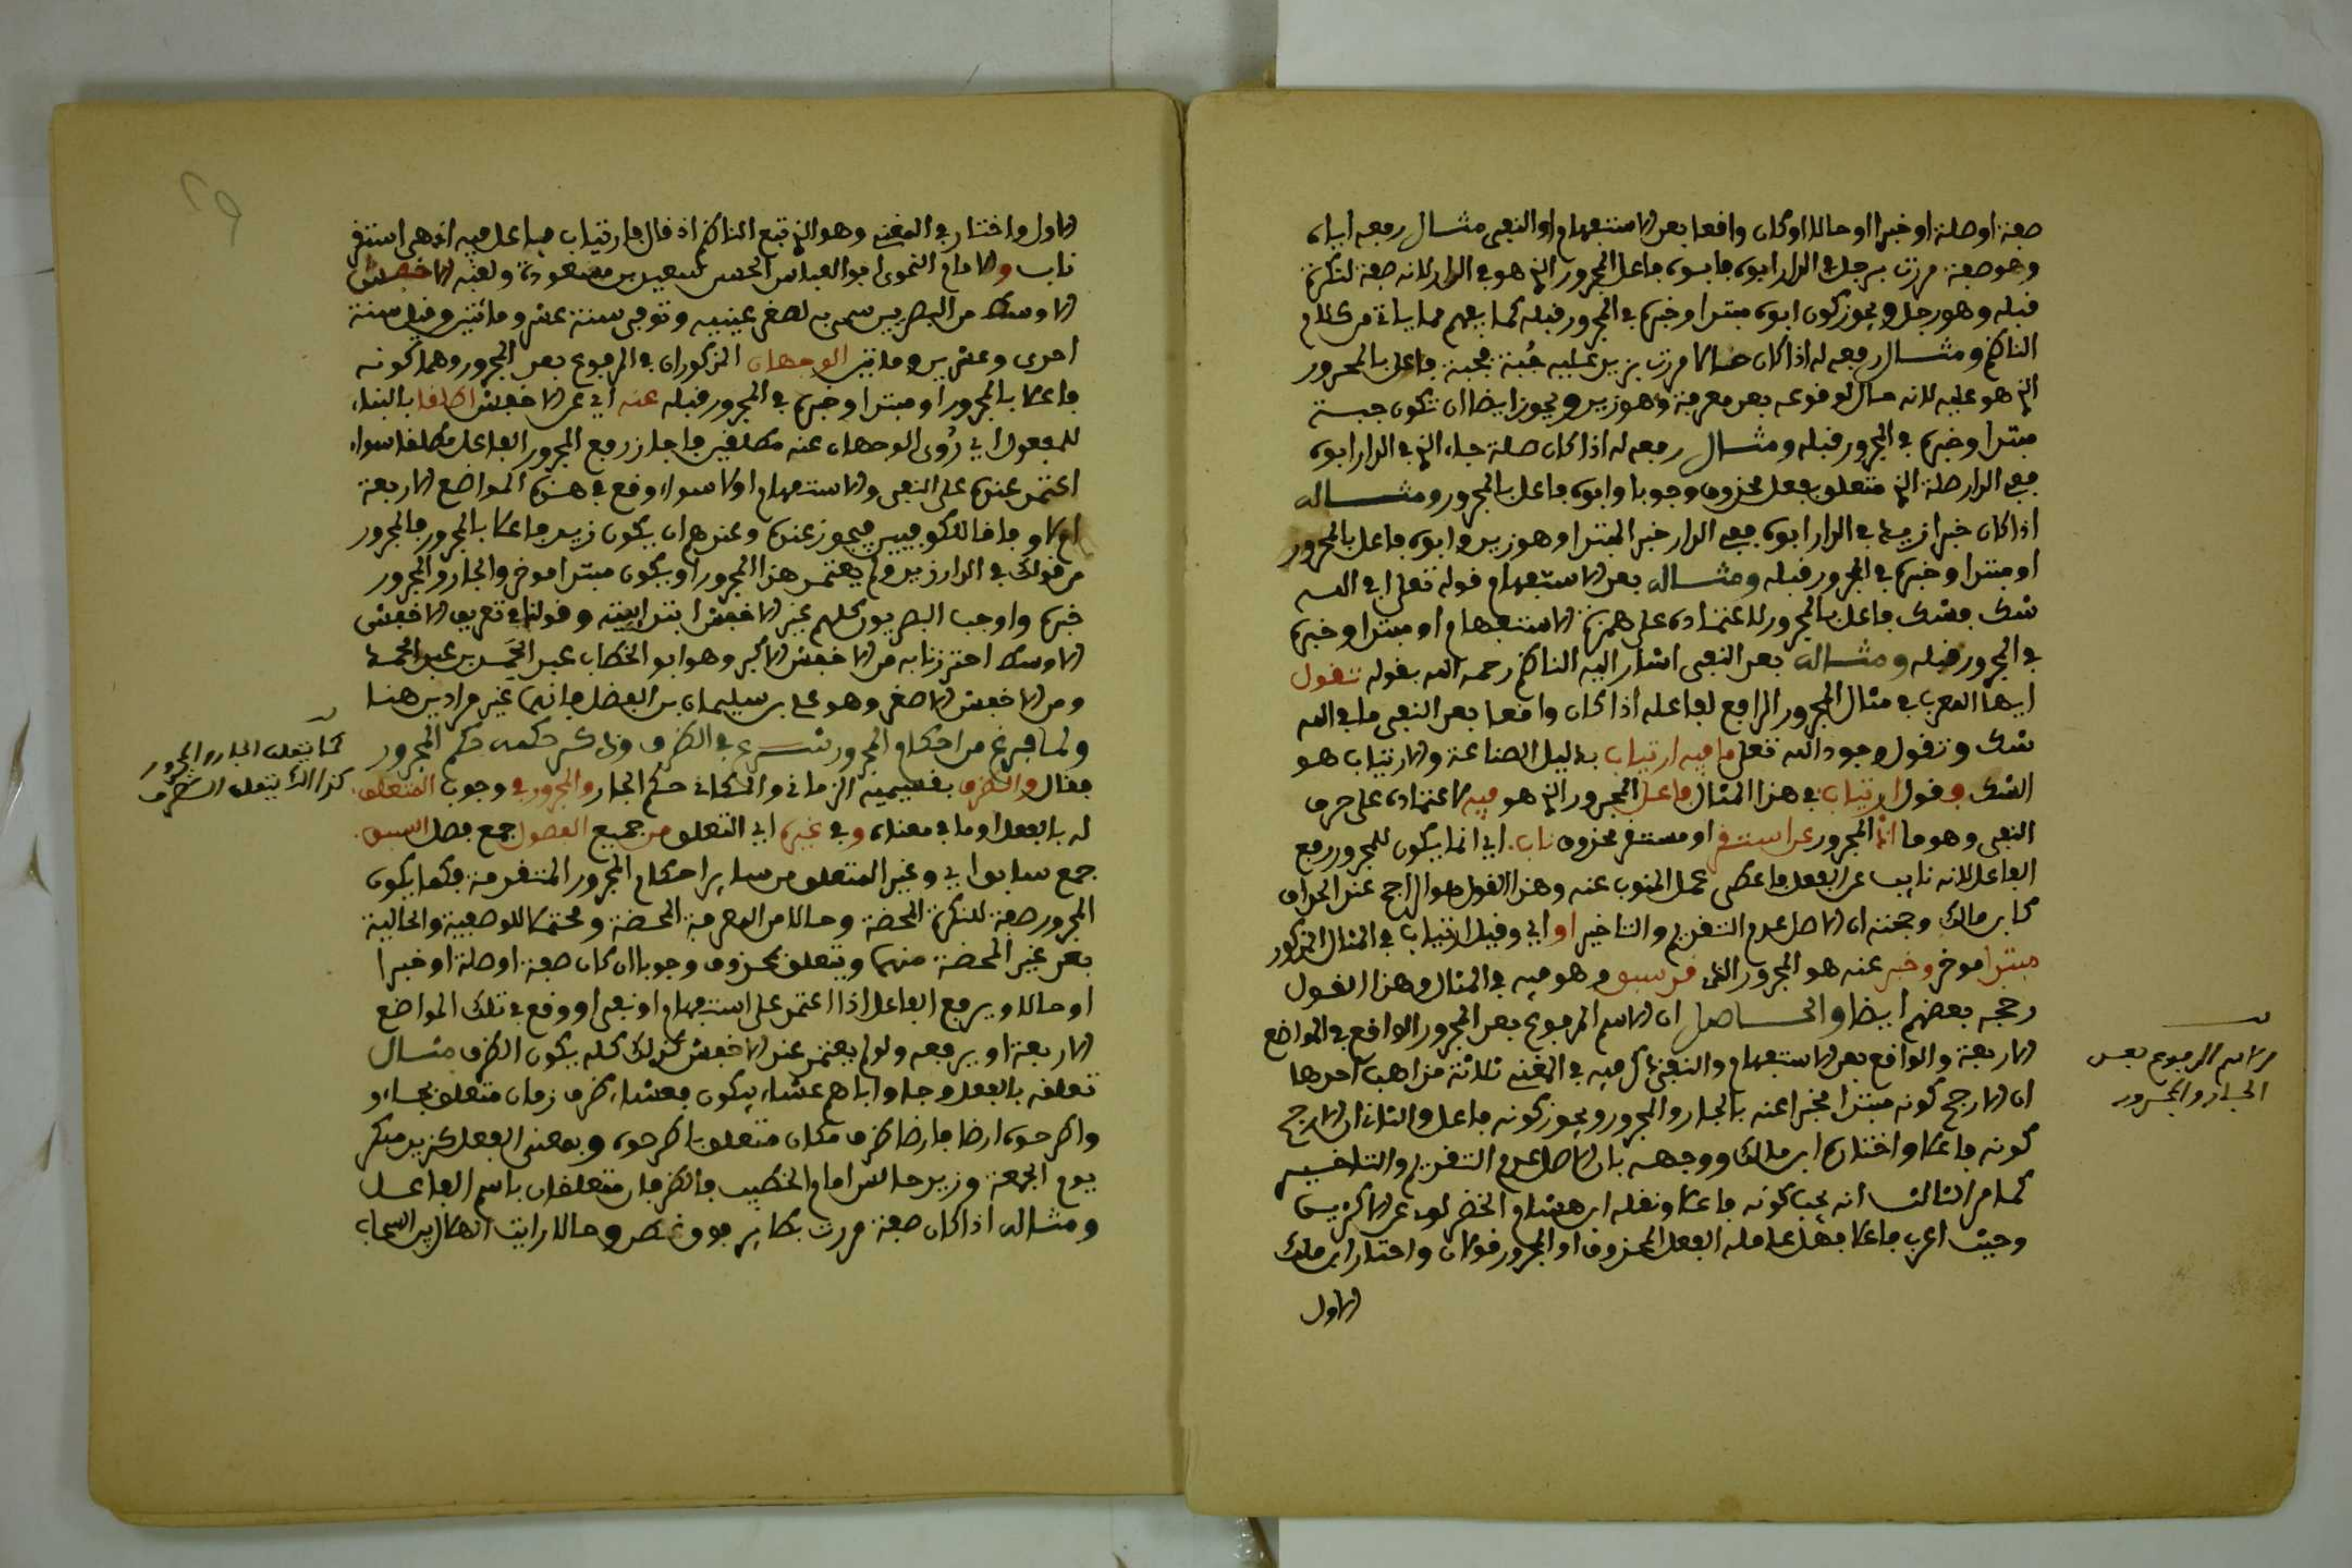 صفة او صلة او خبرا او حالا او كان واقعا بعد الاستفهام او النفي مثال رفعه اياه
وهو صفة مررت برجل في الدار ابوه فابوه فاعل المجرور الذي هو في الدار لانه صفة لنكرة
قبله وهو رجل ويجوز كون ابوه مبتدا وخبره في المجرور قبله كما يفهم مما ياتي من كلام
الناظم ومثال رفعه له اذا كان حالا مررت بزيد عليه جُبة فجبة فاعل بالمجرور
الذي هو عليه لانه حال لوقوعه بعد معرفة وهو زيد ويجوز ايضا ان تكون جبة
مبتدا وخبره في المجرور قبله ومثال رفعه له اذا كان صلة جاء الذي في الدار ابوه
ففي الدار صلة الذي متعلق بفعل محذوف وجوبا وابوه فاعل بالمجرور ومثاله
اذا كان خبرا زيد في الدار ابوه ففي الدار خبر المبتدا وهو زيد وابوه فاعل بالمجرور
او مبتدا وخبره في المجرور قبله ومثاله بعد الاستفهام قوله تعلى افي الله
شك فشك فاعل بالمجرور لاعتماده على همزة الاستفهام او مبتدا وخبره
في المجرور قبله ومثاله بعد النفي اشار اليه الناظم رحمه الله بقوله تقول
ايها المعرب في مثال المجرور الرافع لفاعله اذا كان واقعا بعد النفي ما في الله
شك وتقول وجود الله تعلى ما فيه ارتياب بدليل الصناعة والارتياب هو
الشك وقول ارتياب في هذا المثال فاعل المجرور الذي هو فيه لاعتماده على حرف
النفي وهو ما انما المجرور عن استقر او مستقر محذوف ناب اي انما يكون للمجرور رفع
الفاعل لانه نايب عن الفعل فاعطي عمل المنوب عنه وهذا القول هو الراجح عند الحذاق
كابن مالك وحجته ان الاصل عدم التقديم والتاخير او اي وقيل ارتياب في المثال المذكور
مبتدا موخر وخبر عنه هو المجرور الذي قد سبق وهو فيه في المثال وهذا القول
رجحه بعضهم ايضا والحاصل ان الاسم المرفوع بعد المجرور الواقع في المواضع
الاربعة والواقع بعد الاستفهام والنفي ذكر فيه في المغني ثلاثة مذاهب احدها
ان الارجح كونه مبتدا مخبرا عنه بالجار والمجرور ويجوز كونه فاعل والثاني ان الارجح
كونه فاعلا واختاره ابن مالك ووجهه بان الاصل عدم التقديم والتاخير
كما مر الثالث انه يجب كونه فاعلا ونقله ابن هشام الخضراوي عن الاكثرين
وحيث اعرب فاعلا فهل عامله الفعل المحذوف او المجرور قولان واختار ابن مالك
الاول
الاسم المرفوع بعد
الجار والمجرور
الاول واختار في المغني وهو الذي تبع الناظم اذ قال فارتياب فاعل فيه اذ هي استقر
ناب والامام النحوي ابو العباس الحسن سعيد بن مسعودة ولقبه الاخفش
الاوسط من البصريين سمي به لصغر عينيه وتوفي سنة عشر ومائتين وقيل سنة
احدى وعشرين ومائتين الوجهان المذكوران في المرفوع بعد المجرور وهما كونه
فاعلا بالمجرور او مبتدا وخبره في المجرور قبله عنه اي عن الاخفش اطلقا بالبناء
للمفعول اي رُوي الوجهان عنه مطلقين فاجاز رفع المجرور الفاعل مطلقا سواء
اعتمد عنده على النفي والاستفهام او لا سواء وقع في هذه المواضع الاربعة
ام لا وفاقا للكوفيين فيجوز عنده وعندهم ان يكون زيد فاعلا بالمجرور فالمجرور
من قولك في الدار زيد ولم يعتمد هذا المجرور او يكون مبتدا موخر والجار والمجرور
خبره واوجب البصريون كلهم غير الاخفش ابتدائيته وقولنا في تعريف الاخفش
الاوسط احترزنا به من الاخفش الاكبر وهو ابو الخطاب عبد الحميد بن عبد المجيد
ومن الاخفش الاصغر وهو علي بن سليمان بن الفضل فانهما غير مرادين هنا
ولما فرغ من احكام المجرور شرع في الظرف وذكر حكمه حكم المجرور
فقال والظرف بقسميه الزماني والمكاني حكم الجار والمجرور في وجوب المتعلق
له بالفعل او ما في معناه وفي غيره اي التعلق من جميع الفصول جمع فصل السبق
جمع سابق اي وغير المتعلق من ساير احكام المجرور المتقدمة فكما يكون
المجرور صفة للنكرة المحضة وحالا من المعرفة المحضة ومحتملا للوصفية والحالية
بعد غير المحضة منهما ويتعلق بمحذوف وجوبا ان كان صفة او صلة او خبرا
او حالا ويرفع الفاعل اذا اعتمد على استفهام او نفي او وقع في تلك المواضع
الاربعة او يرفعه ولو لم يعتمد عند الاخفش كذلك كله يكون الظرف مثال
تعلقه بالفعل وجاوا اباهم عشاء يبكون فعشاء ظرف زمان متعلق بجاءو
واطرحوه ارضا فارضا ظرف مكان متعلق باطرحوه وبمعنى الفعل كزيد مبكر
يوم الجمعة وزيد جالس امام الخطيب فالظرفان متعلقان باسم الفاعل
ومثاله اذا كان صفة مررت بطاير فوق غصن وحالا رايت الهلال بين السحاب
كما يتعلق الجار والمجرور
كذالك يتعلق الظرف